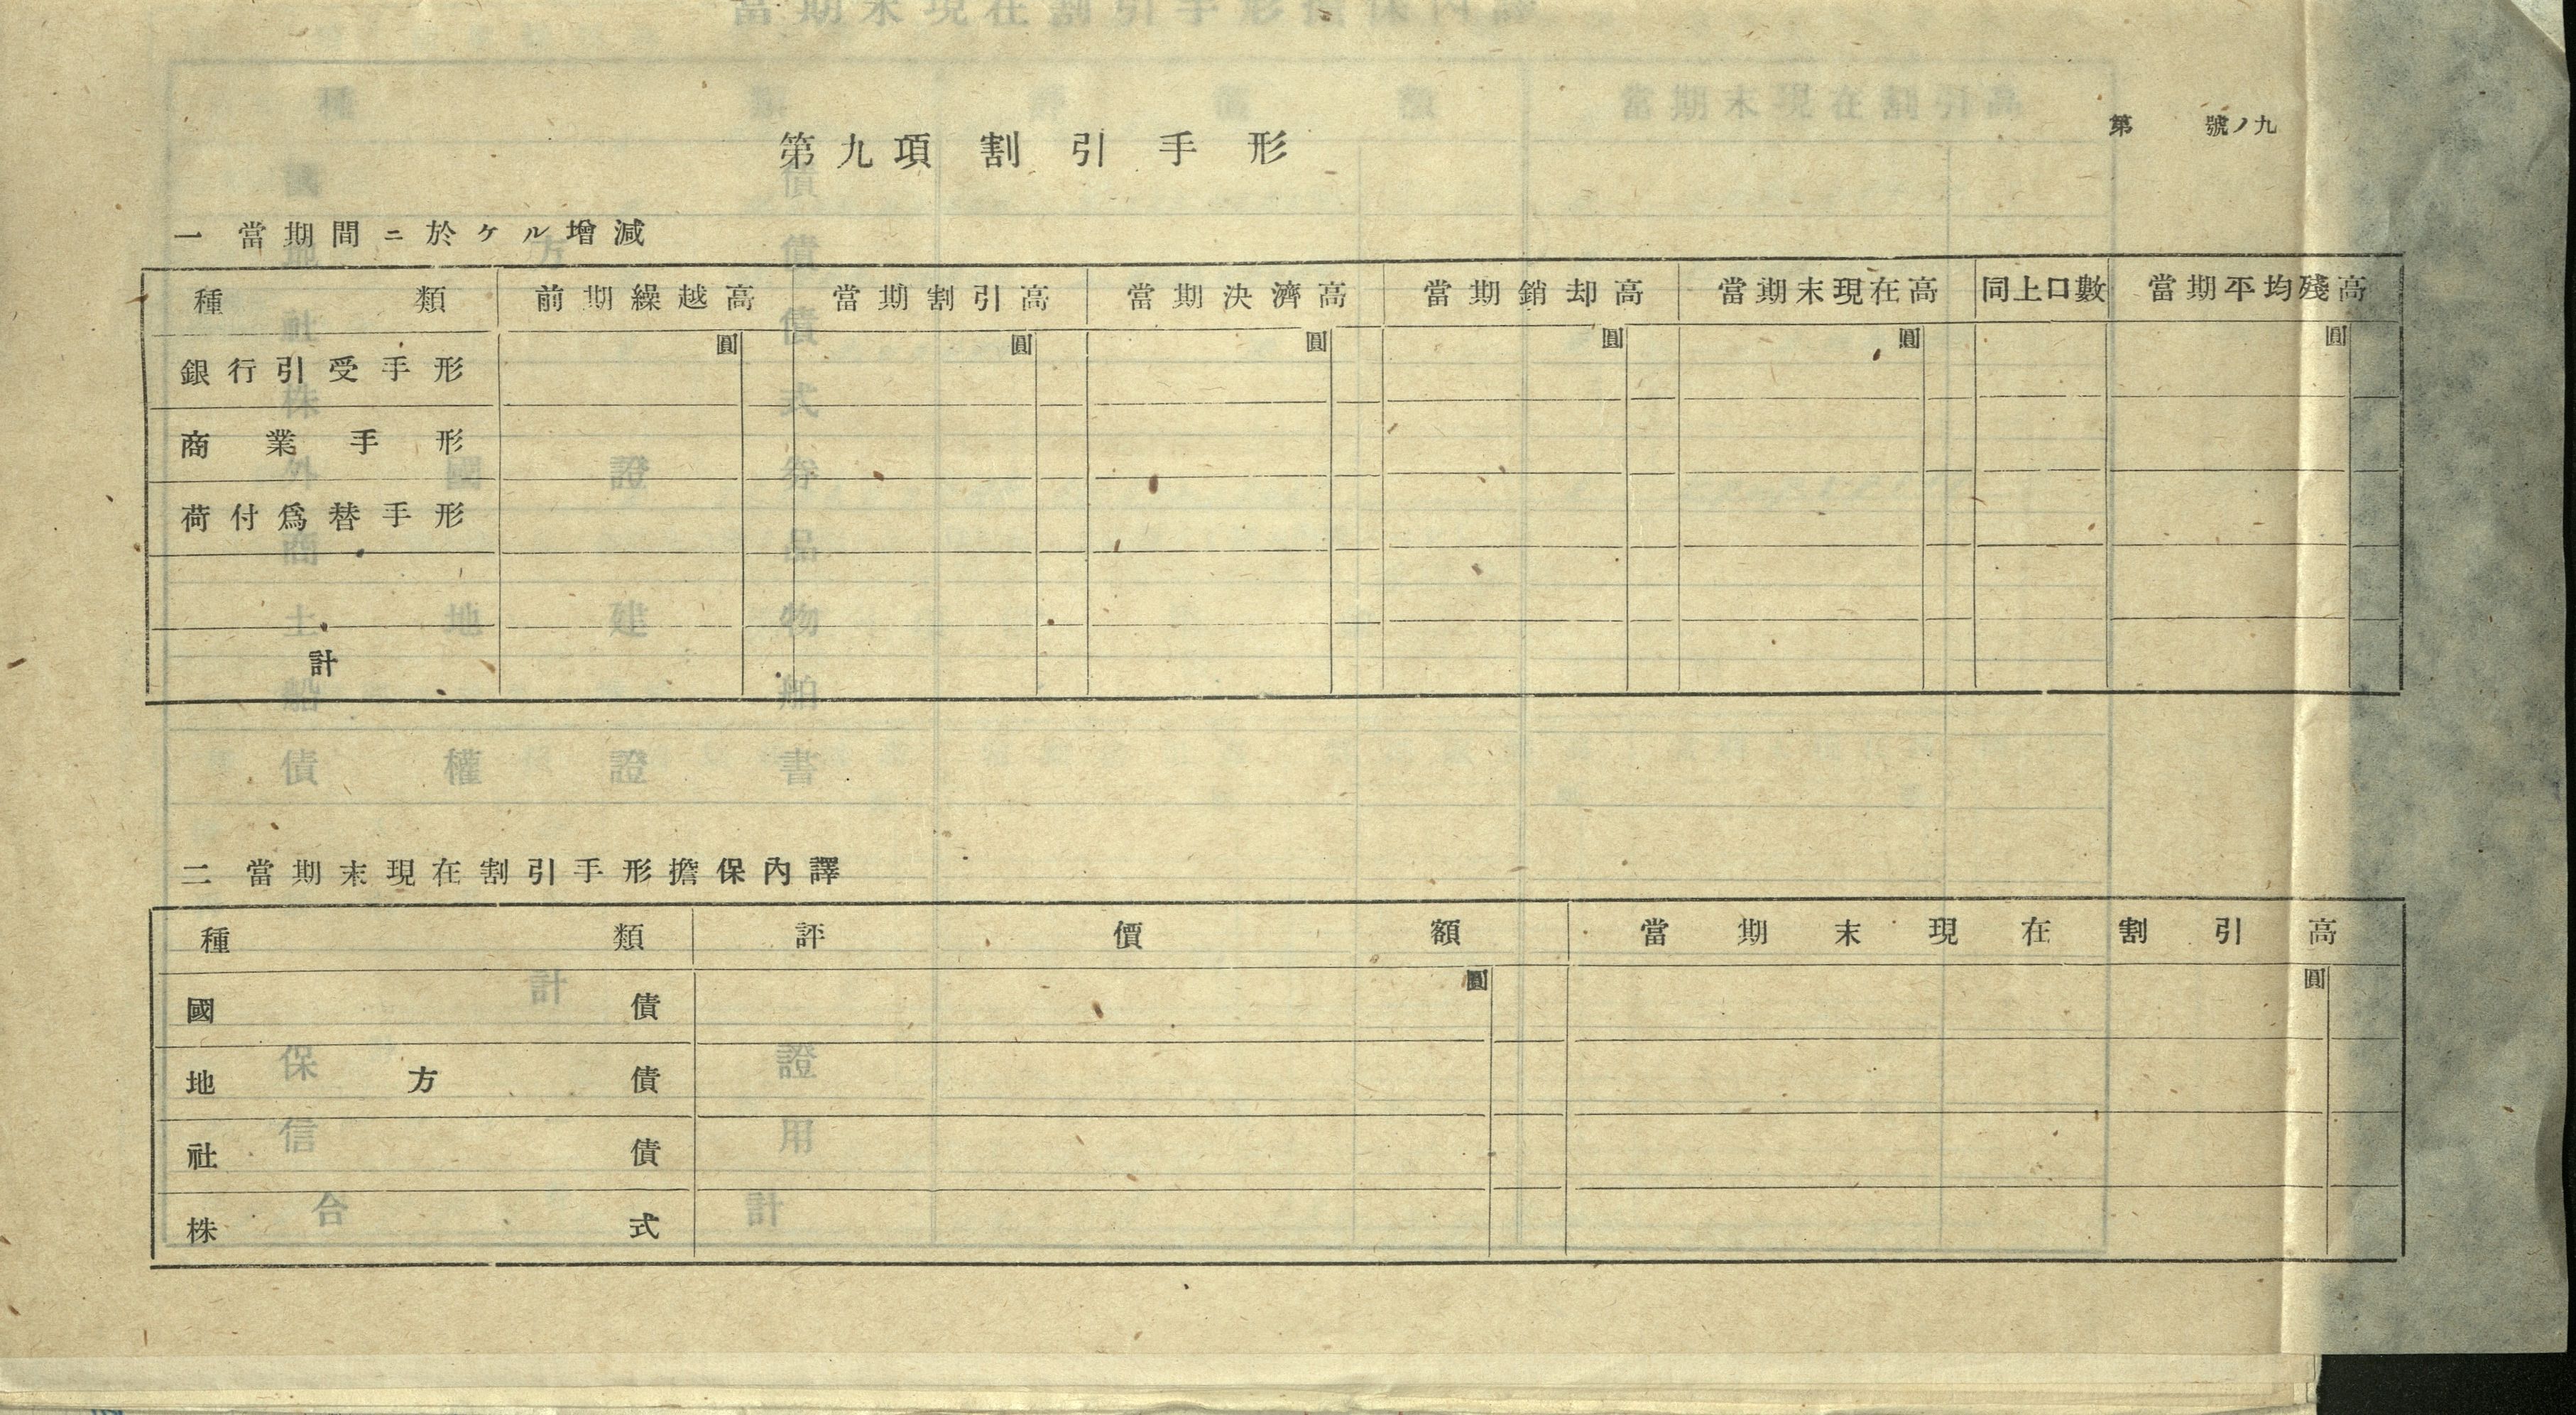 第　號ノ九
第九項 割引手形
一 當期間ニ於ケル增減
種類 前期繰越高 當期割引高 當期決濟高 當期銷却高 當期末現在高 同上口數 當期平均殘高
圓 圓 圓 圓 圓 圓
銀行引受手形
商業手形
荷付爲替手形
計
二 當期末現在割引手形擔保內譯
種類 評價額 當期末現在割引高
圓 圓
國債
地方債
社債
株式